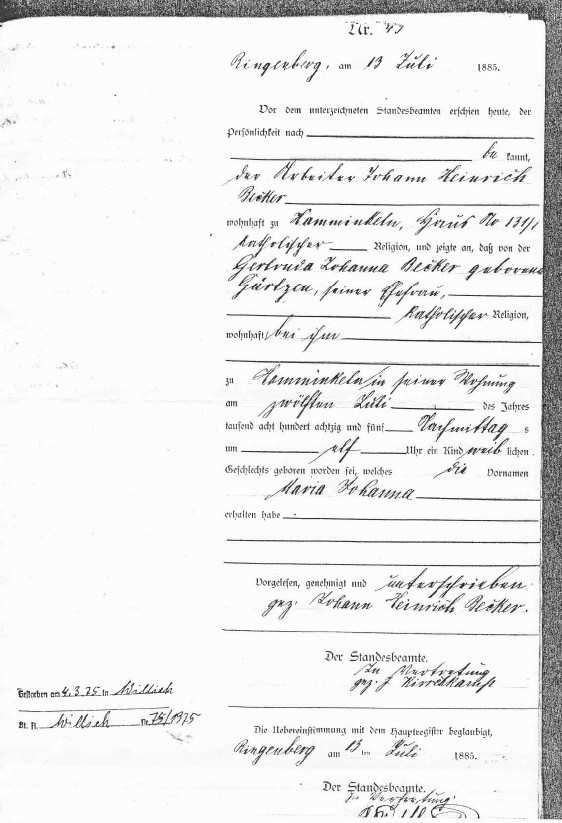 Nr. 43
Ringenberg, am 13 Juli 1885.
Vor dem unterzeichneten Standesbeamten erschien heute, der
Persönlichkeit nach
be kannt,
der Arbeiter Johann Heinrich
Becker
wohnhaft zu Hamminkeln, Haus No 131/1
katholischer Religion, und zeigte an, daß von der
Johanna Becker geborene
seiner Ehefrau,
katholischer Religion,
wohnhaft bei ihm
zu Hamminkeln in seiner Wohnung
am zwölften Juli des Jahres
tausend acht hundert achtzig und fünf Nachmittag s
um elf Uhr ein Kind weib lichen
Geschlechts geboren worden sei, welches die Vornamen
Maria Johanna
erhalten habe
Vorgelesen, genehmigt und unterschrieben
gez. Johann Heinrich Becker.
Der Standesbeamte.
In Vertretung
gez. J
Gestorben am 4.3.75 in Willich
St. A. Willich Nr. 75/1975
Die Uebereinstimmung mit dem Hauptregister beglaubigt,
Ringenberg am 13 ten Juli 1885.
Der Standesbeamte.
In Vertretung